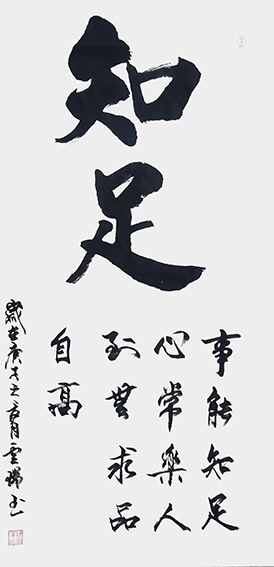 知足
事能知足
心常樂人
到無求品
自高
歲在庚子之月雲瑞书